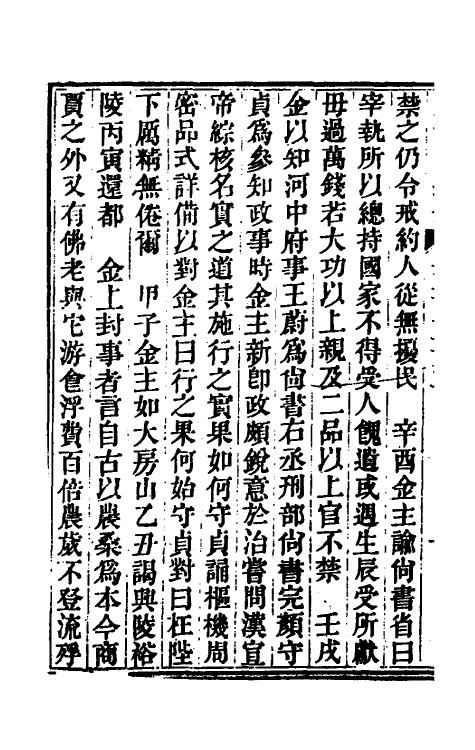 禁之仍令戒約人從無擾民　辛酉金主諭尙書省曰
宰執所以總持國家不得受人餽遺或遇生辰受所獻
毋過萬錢若大功以上親及二品以上官不禁　壬戌
金以知河中府事王蔚爲尙書右丞刑部尙書完顏守
貞爲參知政事時金主新卽政頗銳意於治嘗問漢宣
帝綜核名實之道其施行之實果如何守貞誦樞機周
密品式詳備以對金主曰行之果何始守貞對曰在陛
下厲精無倦爾　甲子金主如大房山乙丑謁興陵裕
陵丙寅還都　金上封事者言自古以農桑爲本今商
賈之外又有佛老與它游食浮費百倍農歲不登流殍